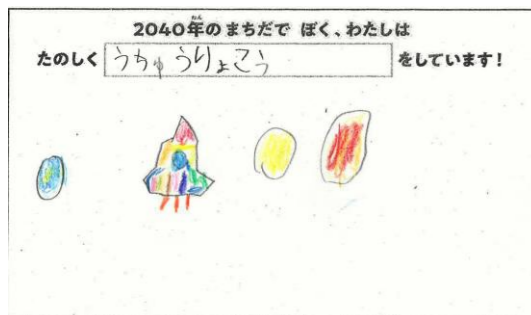 2040年のまちだで ぼく、わたしは
たのしく うちゅうりょこう をしています!